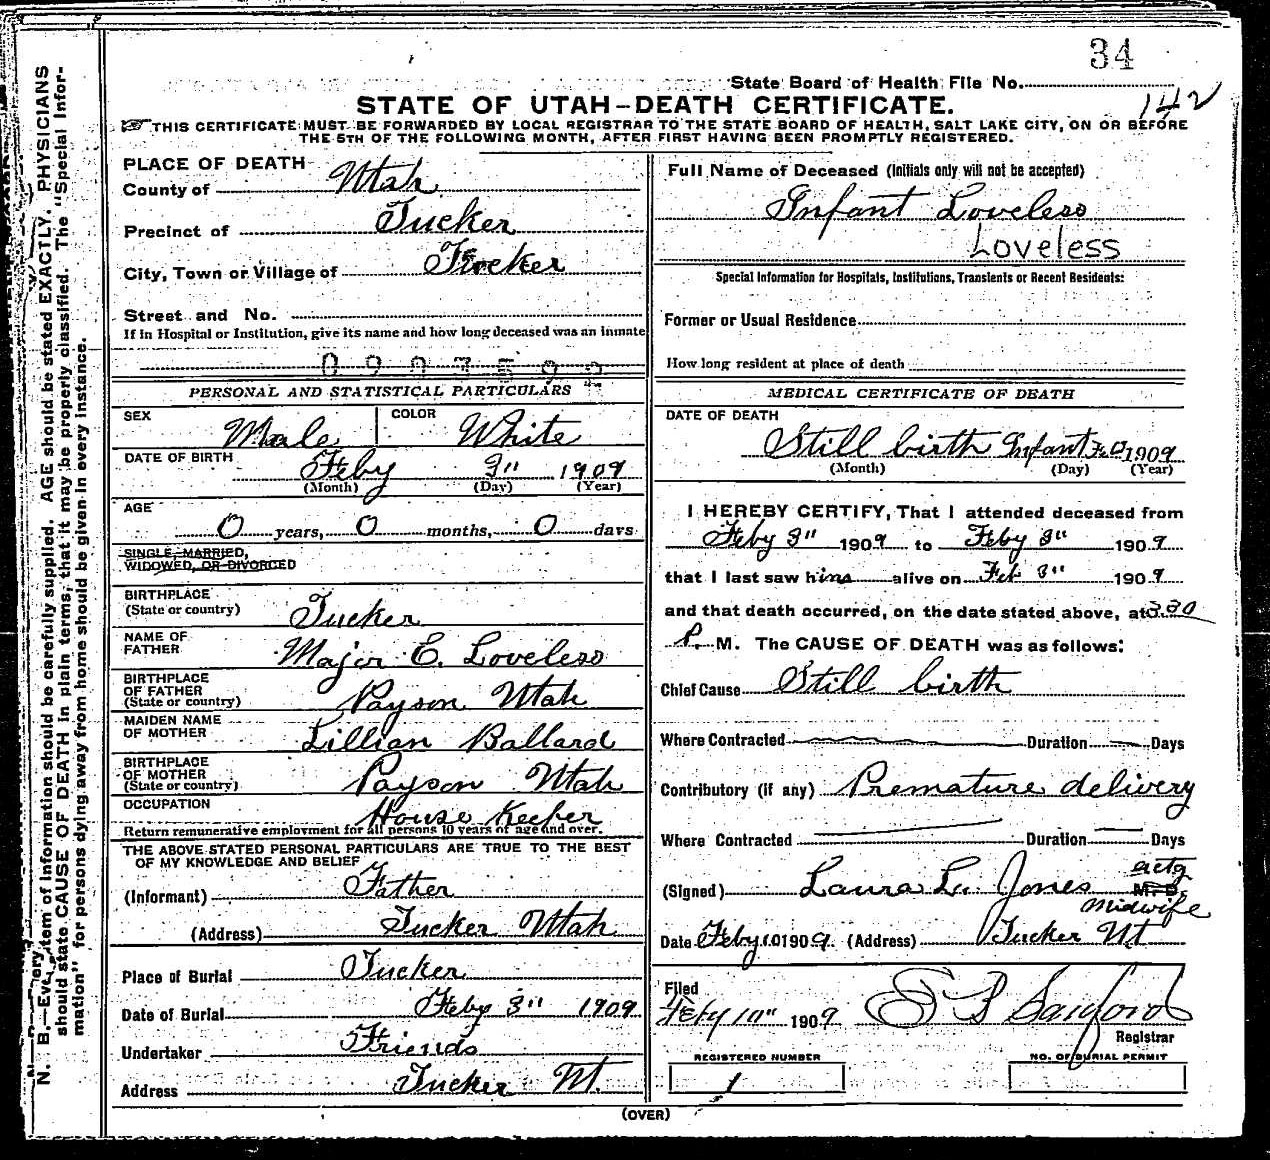 34
State Board of Health File No.
142
STATE OF UTAH—DEATH CERTIFICATE.
THIS CERTIFICATE MUST BE FORWARDED BY LOCAL REGISTRAR TO THE STATE BOARD OF HEALTH, SALT LAKE CITY, ON OR BEFORE
THE 5TH OF THE FOLLOWING MONTH, AFTER FIRST HAVING BEEN PROMPTLY REGISTERED.
N. B.—Every item of information should be carefully supplied. AGE should be stated EXACTLY. PHYSICIANS
should state CAUSE OF DEATH in plain terms, that it may be properly classified. The "Special Infor-
mation" for persons dying away from home should be given in every instance.
PLACE OF DEATH
County of Utah
Precinct of Tucker
City, Town or Village of Tucker
Street and No.
If in Hospital or Institution, give its name and how long deceased was an inmate
PERSONAL AND STATISTICAL PARTICULARS
SEX Male COLOR White
DATE OF BIRTH Feby 3" 1909
(Month) (Day) (Year)
AGE
0 years, 0 months, 0 days
SINGLE, MARRIED,
WIDOWED, OR DIVORCED
BIRTHPLACE
(State or country) Tucker
NAME OF
FATHER Major E. Loveless
BIRTHPLACE
OF FATHER
(State or country) Payson Utah
MAIDEN NAME
OF MOTHER Lillian Ballard
BIRTHPLACE
OF MOTHER
(State or country) Payson Utah
OCCUPATION House Keeper
Return remunerative employment for all persons 10 years of age and over.
THE ABOVE STATED PERSONAL PARTICULARS ARE TRUE TO THE BEST
OF MY KNOWLEDGE AND BELIEF
(Informant) Father
(Address) Tucker Utah
Place of Burial Tucker
Date of Burial Feby 3" 1909
Undertaker Friends
Address Tucker Ut.
Full Name of Deceased (Initials only will not be accepted)
Infant Loveless
Loveless
Special Information for Hospitals, Institutions, Transients or Recent Residents:
Former or Usual Residence
How long resident at place of death
MEDICAL CERTIFICATE OF DEATH
DATE OF DEATH
Still birth Infant 1909
(Month) (Day) (Year)
I HEREBY CERTIFY, That I attended deceased from
Feby 3" 1909 to Feby 3" 1909
that I last saw him alive on Feb 3" 1909
and that death occurred, on the date stated above, at 3.30
P. M. The CAUSE OF DEATH was as follows:
Chief Cause Still birth
Where Contracted Duration Days
Contributory (if any) Premature delivery
Where Contracted Duration Days
actg
(Signed) Laura L. Jones M. D.
Midwife
Date Feby 10 1909 (Address) Tucker Ut
Filed
Feby 10" 1909 Sanford
Registrar
REGISTERED NUMBER NO. OF BURIAL PERMIT
1
(OVER)